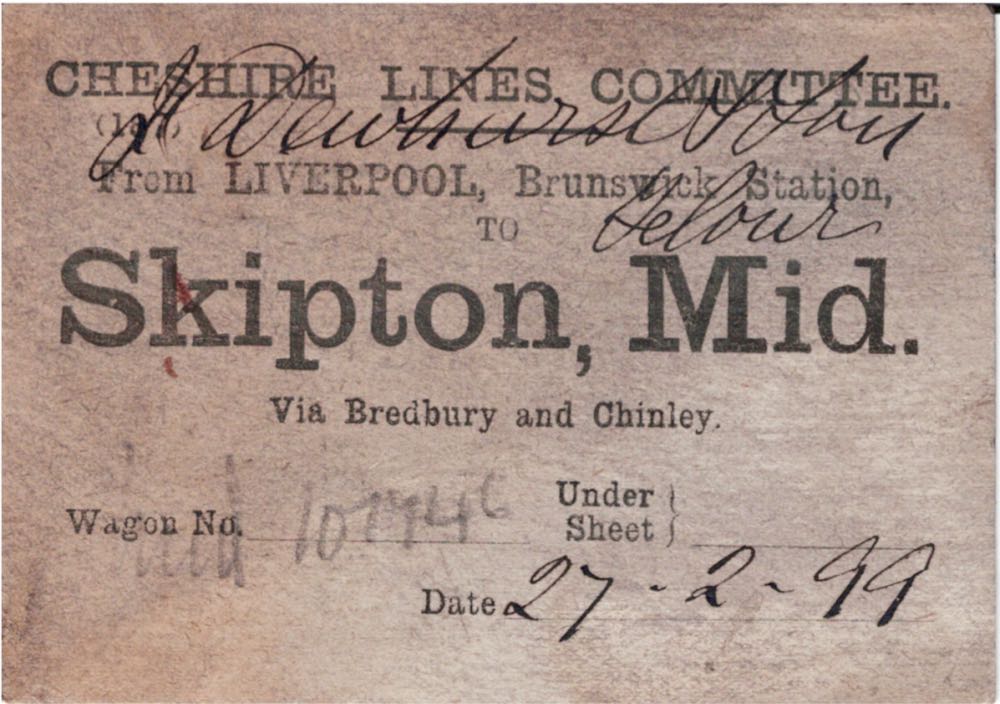 CHESHIRE LINES COMMITTEE.
J Dewhurst & Son
From LIVERPOOL, Brunswick Station,
TO
Skipton, Mid.
Via Bredbury and Chinley.
Wagon No.
Under
Sheet }
Date 27-2-99